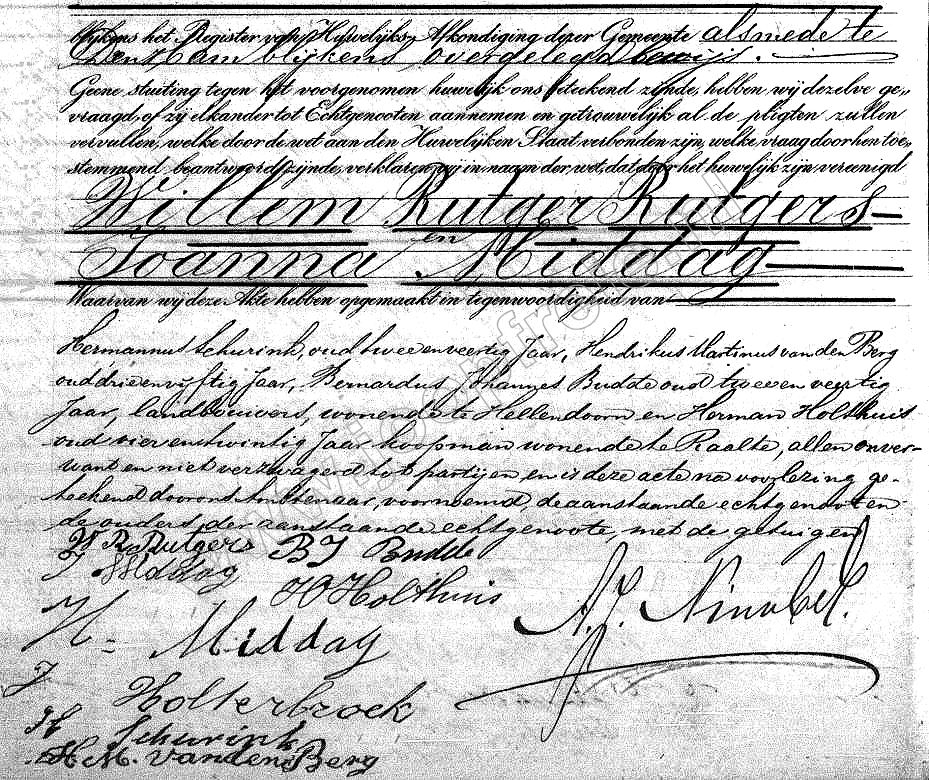 blijkens het Register van Huwelijks Afkondiging dezer Gemeente alsmede te
Den Ham blijkens overgelegd bewijs.
Geene stuiting tegen het voorgenomen huwelijk ons beteekend zijnde, hebben wij dezelve ge„
vraagd, of zij elkander tot Echtgenooten aannemen en getrouwelijk al de pligten zullen
vervullen, welke door de wet aan den Huwelijken Staat verbonden zijn, welke vraag door hen toe„
stemmend beantwoord zijnde, verklaren wij in naam der wet, dat door het huwelijk zijn vereenigd
Willem Rutger Rutgers
en
Joanna Middag
Waarvan wij deze Akte hebben opgemaakt in tegenwoordigheid van
Hermannus Schurink, oud twee en veertig Jaar, Hendrikus Martinus van den Berg
oud drie en vijftig Jaar, Bernardus Johannes Budde oud twee en veertig
Jaar, landbouwers, wonende te Hellendoorn en Herman Holthuis
oud vier en twintig Jaar koopman wonende te Raalte, allen onver-
want en niet verzwagerd tot partijen en is deze acte na voorlezing ge-
teekend door ons Ambtenaar, voornoemd, de aanstaande echtgenooten
de ouders der aanstaande echtgenoote, met de getuigen
W R Rutgers BJ Budde
J Middag
H Holthuis
H. Middag
J Holterbroek
H Schurink
H. M. van den Berg